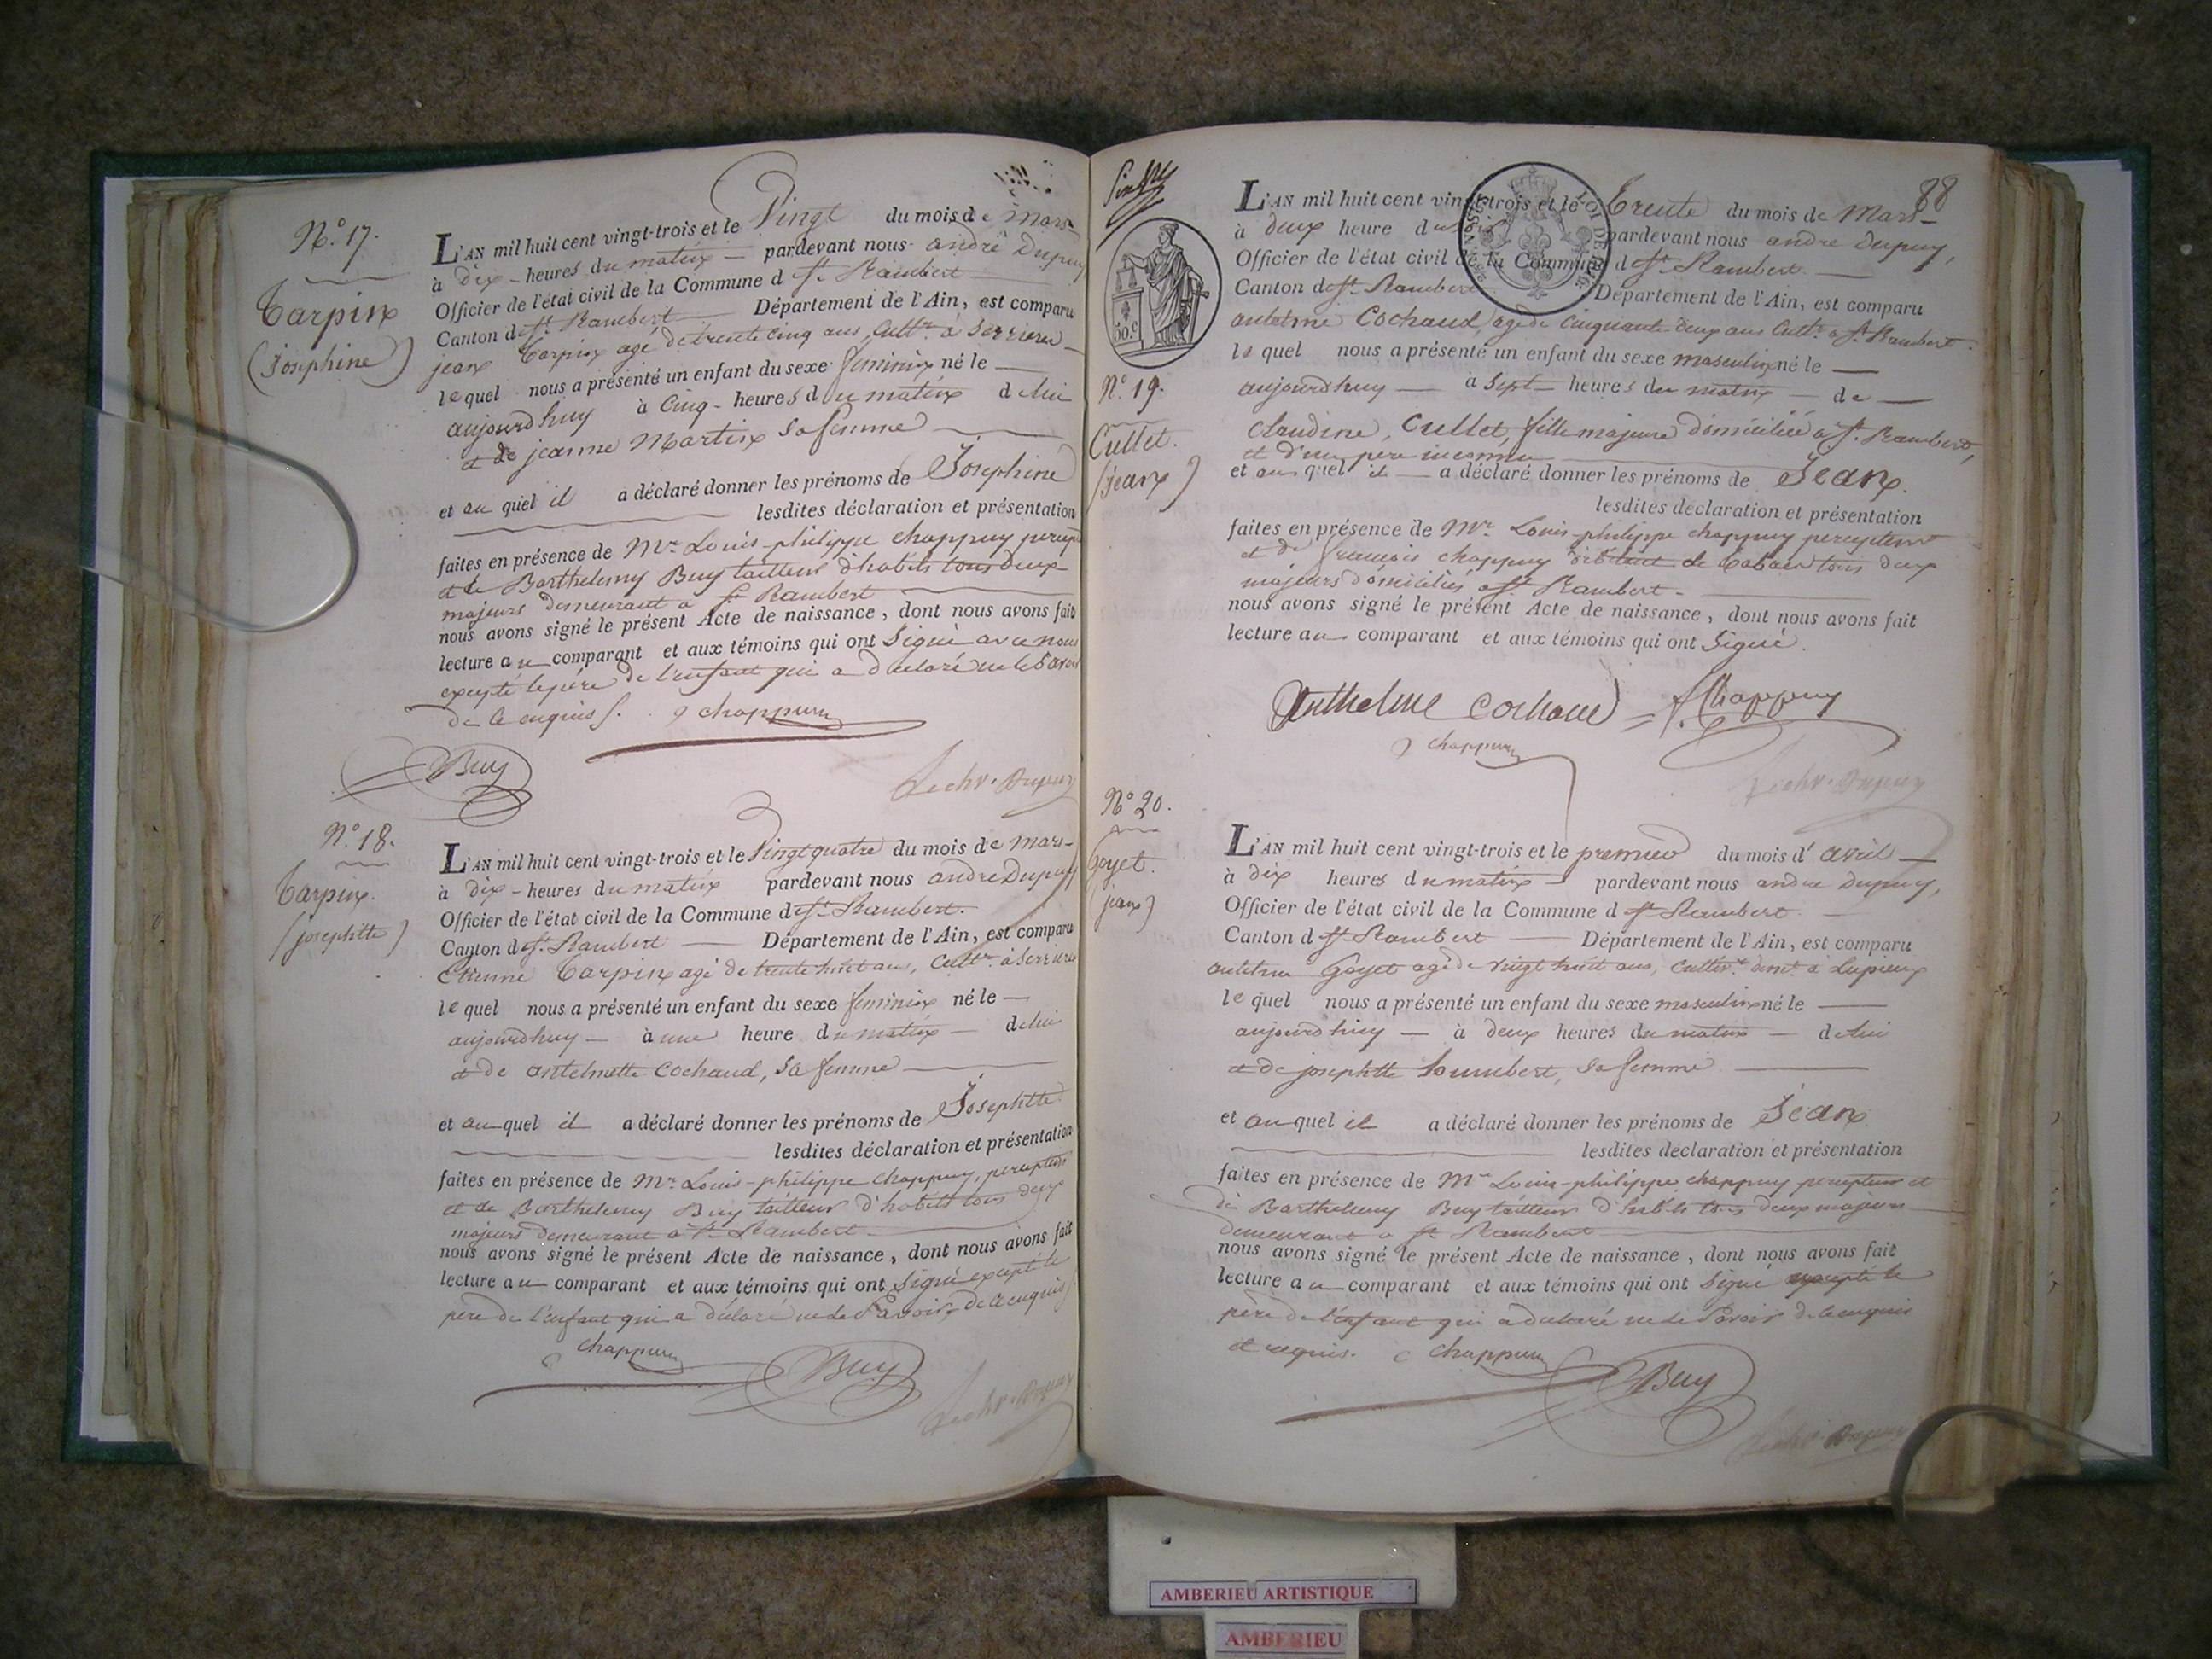 N.º 17.
Tarpin
(Joséphine)
L'AN mil huit cent vingt-trois et le Vingt du mois de mars
à dix heures du matin pardevant nous andré Dupuy
Officier de l'état civil de la Commune d St. Rambert
Canton de St. Rambert Département de l'Ain, est comparu
jean Tarpin agé de trente cinq ans, Cultr. à Serrieres
lequel nous a présenté un enfant du sexe feminin né le
aujourdhuy à Cinq heures du matin de lui
et de jeanne Martin sa femme
et au quel il a déclaré donner les prénoms de Joséphine
lesdites déclaration et présentation
faites en présence de Mr. Louis-philippe chappuy
et de Barthelemy Buy tailleur d'habits tous deux
majeurs demeurant à St Rambert
nous avons signé le présent Acte de naissance, dont nous avons fait
lecture au comparant et aux témoins qui ont Signé avec nous
excepté le père de l'enfant qui a déclaré ne le savoir
de ce enquis f. chappuy
Buy
Dupuy
N.º 18.
Tarpin.
(josephtte)
L'AN mil huit cent vingt-trois et le Vingt quatre du mois de mars
à dix heures du matin pardevant nous andré Dupuy
Officier de l'état civil de la Commune d St. Rambert.
Canton d St. Rambert Département de l'Ain, est comparu
Etienne Tarpin agé de trente huit ans, Cultr. à Serrieres
lequel nous a présenté un enfant du sexe feminin né le
aujourdhuy à une heure du matin de lui
et de antelmette Cochaud, sa femme
et au quel il a déclaré donner les prénoms de Josephtte
lesdites déclaration et présentation
faites en présence de Mr. Louis-philippe chappuy, percepteur
et de Barthelemy Buy tailleur d'habits tous deux
majeurs demeurant à St. Rambert
nous avons signé le présent Acte de naissance, dont nous avons fait
lecture au comparant et aux témoins qui ont Signé excepté le
père de l'enfant qui a déclaré ne le savoir de ce enquis
chappuy Buy
Dupuy
88
50.c
LOI DE
N.º 19.
Cullet.
(jean)
L'AN mil huit cent vingt-trois et le Trente du mois de Mars
à deux heure du soir pardevant nous andre Dupuy,
Officier de l'état civil de la Commune d St. Rambert.
Canton de St. Rambert Département de l'Ain, est comparu
antelme Cochaud, agé de Cinquante deux ans Cultr. à St. Rambert
lequel nous a présenté un enfant du sexe masculin né le
aujourdhuy à Sept heures du matin de
Claudine, Cullet, fille majeure domiciliée à St. Rambert,
et d'un père inconnu
et au quel il a déclaré donner les prénoms de Jean
lesdites déclaration et présentation
faites en présence de Mr. Louis-philippe chappuy percepteur
et de francois chappuy débitant de tabac tous deux
majeurs domiciliés à St. Rambert
nous avons signé le présent Acte de naissance, dont nous avons fait
lecture au comparant et aux témoins qui ont Signé.
Anthelme Cochaud f. Chappuy
chappuy
Dupuy
Nº 20.
Goyet.
(jean)
L'AN mil huit cent vingt-trois et le premier du mois d'avril
à dix heures du matin pardevant nous andre Dupuy,
Officier de l'état civil de la Commune d St. Rambert.
Canton d St. Rambert Département de l'Ain, est comparu
antelme Goyet agé de vingt huit ans, cultivr. demt. à Lupieux
lequel nous a présenté un enfant du sexe masculin né le
aujourdhuy à deux heures du matin de lui
et de josephtte humbert, sa femme
et au quel il a déclaré donner les prénoms de Jean
lesdites déclaration et présentation
faites en présence de Mr Louis-philippe chappuy percepteur et
de Barthelemy Buy tailleur d'habits tous deux majeurs
demeurant à St Rambert
nous avons signé le présent Acte de naissance, dont nous avons fait
lecture au comparant et aux témoins qui ont Signé excepté le
père de l'enfant qui a déclaré ne le savoir de ce enquis
et requis. chappuy
Buy
Dupuy
AMBERIEU ARTISTIQUE
AMBERIEU